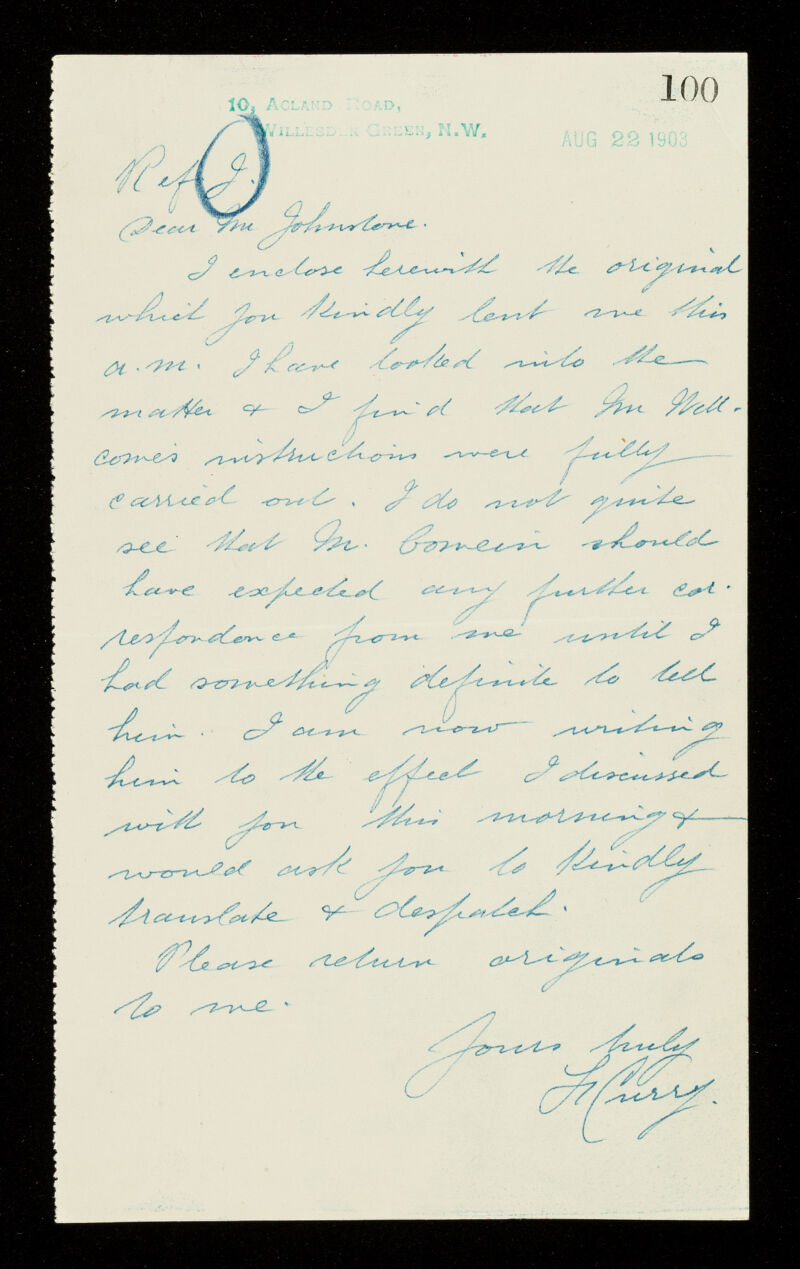 100
10, ACLAND ROAD,
WILLESDEN GREEN, N.W.
AUG 22 1903
Ref. J.
Dear Mr Johnstone.
I enclose herewith the original
which you kindly lent me this
a.m. I have looked into the
matter & I find that Mr Well-
come's instructions were fully
carried out. I do not quite
see that M. should
have expected any further cor-
respondence from me until I
had something definite to tell
him. I am now writing
him to the effect I discussed
with you this morning &
would ask you to kindly
translate & despatch.
Please return originals
to me.
Yours truly
Curry.